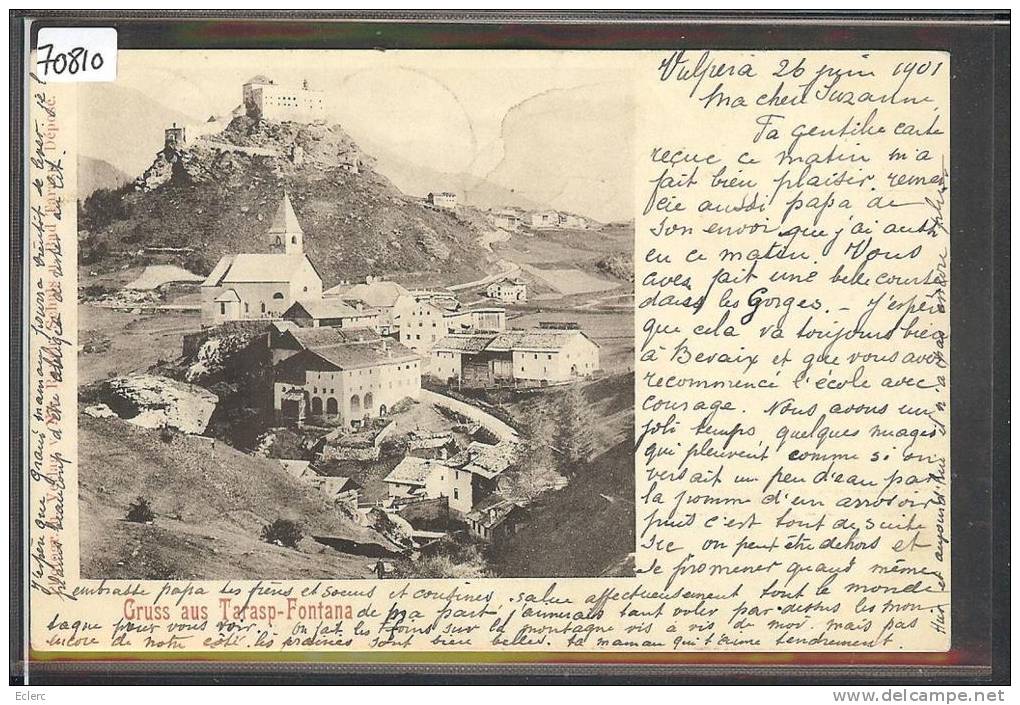 70810
Vulpera 26 juin 1901
Ma chère Suzanne,
Ta gentille carte
reçue ce matin m'a
fait bien plaisir, remer
cie aussi papa de
son envoi que j'ai aussi
eu ce matin. Vous
avez fait une belle course
dans les Gorges. - J'espère
que cela va toujours bien
à Bevaix et que vous avez
recommencé l'école avec
courage. Nous avons un
joli temps quelques nuages
qui pleuvent comme si on
versait un peu d'eau par
la pomme d'un arrosoir
puis c'est tout de suite
on peut être dehors et
se promener quand même
embrasse papa les frères et soeurs et cousines. salue affectueusement tout le monde
Gruss aus Tarasp-Fontana
de ma part j'aimerais tant voler par dessus les mon
tagne pour vous voir. on fait les foins sur la montagne vis à vis de moi. mais pas
encore de notre côté. les prairies sont bien belles. ta maman qui t'aime tendrement
J'espère que Grand maman pourra bientôt se lever
plus beaucoup à être obligée de rester au lit.
Eclerc
www.delcampe.net